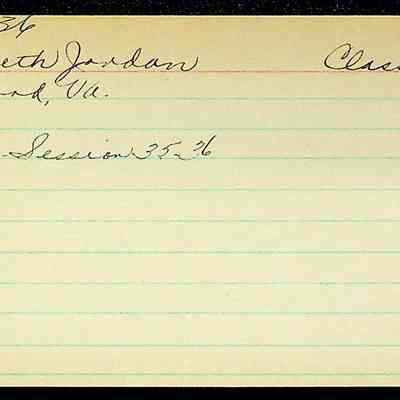 36
eth Jordan Clas
ond, Va.
Session 35-36